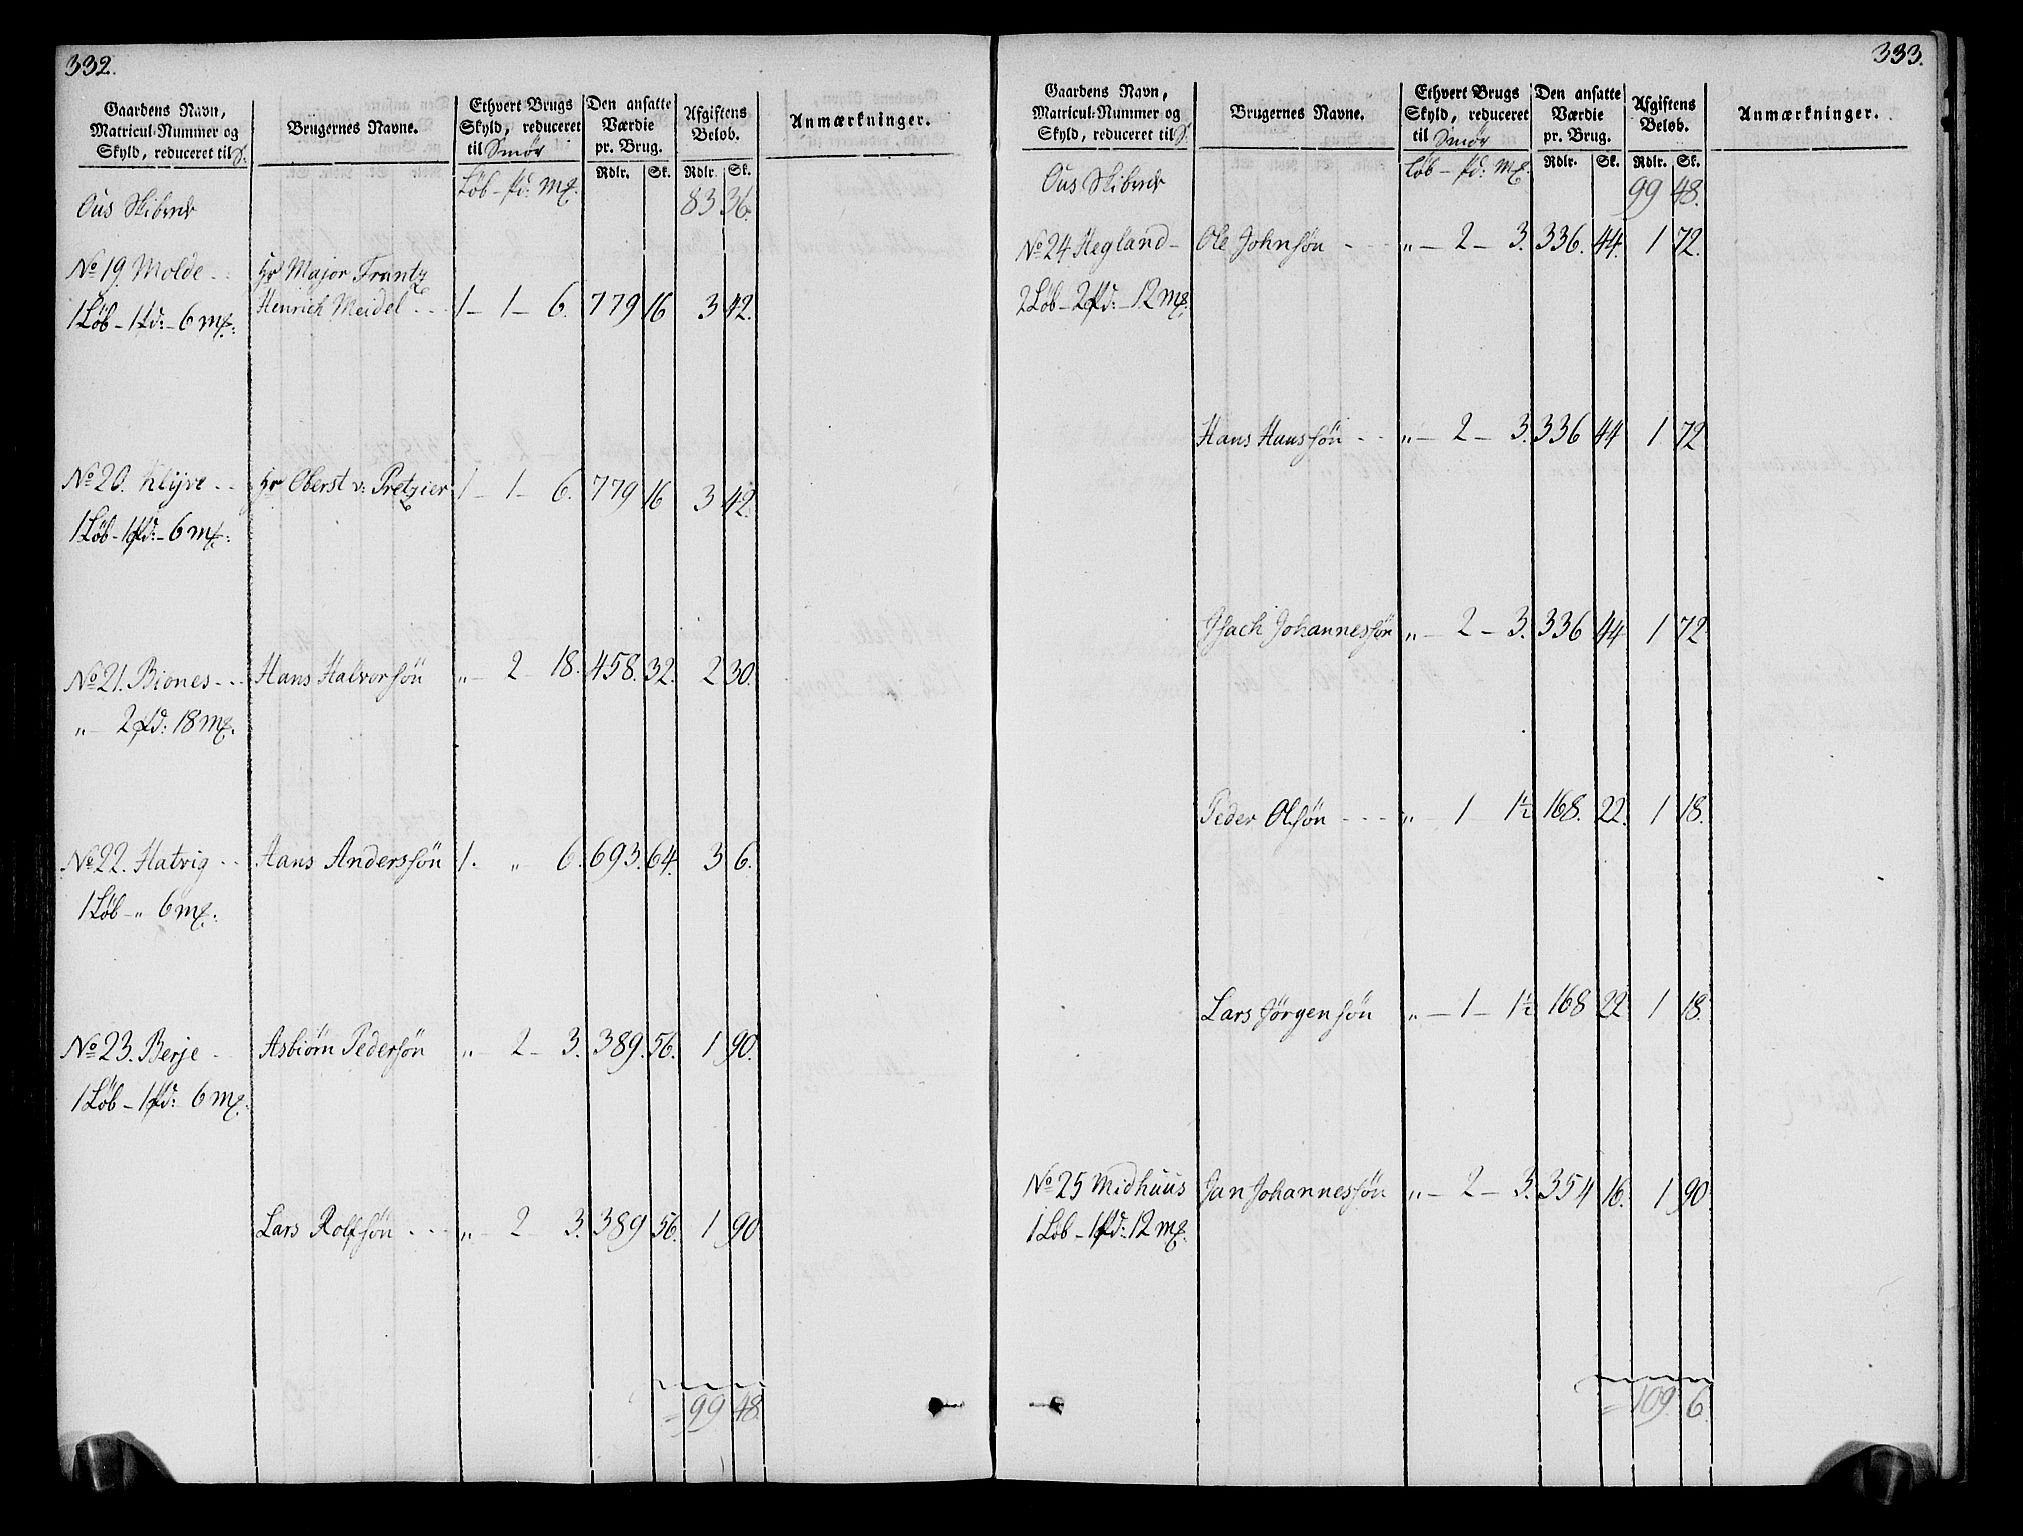 332.
Gaardens Navn, Matricul-Nummer og Skyld, reduceret til S. | Brugernes Navne. | Ethvert Brugs Skyld, reduceret til Smør | Den ansatte Værdie pr. Brug. | Afgiftens Beløb. | Anmærkninger.
Løb - pd: mg. | Rdlr. | Sk. | Rdlr. | Sk.
Ous Skibrede | 83 36.
No 19. Molde - Hr Major Frantz
1 Løb - 1 pd: - 6 mg: Henrich Meidel . . . 1 - 1 - 6. 779 16 3 42.
No 20. Klyve - - Hr Oberst v: Pretzier 1 - 1 - 6. 779 16 3 42.
1 Løb - 1 pd: - 6 mg:
No 21. Biones - - Hans Halvorsøn " - 2 - 18. 458. 32. 2 30.
" - 2 pd: 18 mg.
No 22. Hatvig - - Hans Anderssøn 1. " 6. 693. 64. 3 6.
1 Løb - " 6 mg:
No 23. Berje - Asbiørn Pedersøn " - 2 - 3. 389. 56. 1 90.
1 Løb - 1 pd: 6 mg:
Lars Rolfsøn - - - " - 2 - 3. 389 56. 1 90
= 99 48.
333.
Gaardens Navn, Matricul-Nummer og Skyld, reduceret til S. | Brugernes Navne. | Ethvert Brugs Skyld, reduceret til Smør | Den ansatte Værdie pr. Brug. | Afgiftens Beløb. | Anmærkninger.
Løb - pd: mg. | Rdlr. | Sk. | Rdlr. | Sk.
Ous Skibrede | 99 48.
No 24 Hegland - Ole Johnsøn - - - " - 2 - 3. 336. 44. 1 72.
2 Løb - 2 pd: - 12 mg:
Hans Hanssøn - - " - 2 - 3. 336 44 1 72
Isach Johannessøn " - 2 - 3. 336 44 1 72
Peder Olsøn - - - " - 1 1½ 168. 22. 1 18.
Lars Jørgensøn " - 1 - 1½ 168 22 1 18.
No 25 Midhuus Jan Johannessøn " - 2 - 3. 354 16. 1 90.
1 Løb - 1 pd: 12 mg.
= 109. 6.